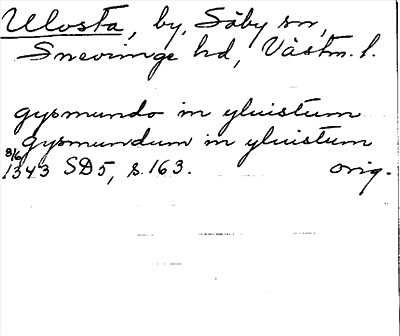 Ulvsta, by, Säby sn,
Snevringe hd, Västm. l.
gysmundo in yluistum
gysmundum in yluistum
8/6 1343 SD5, s. 163. orig.